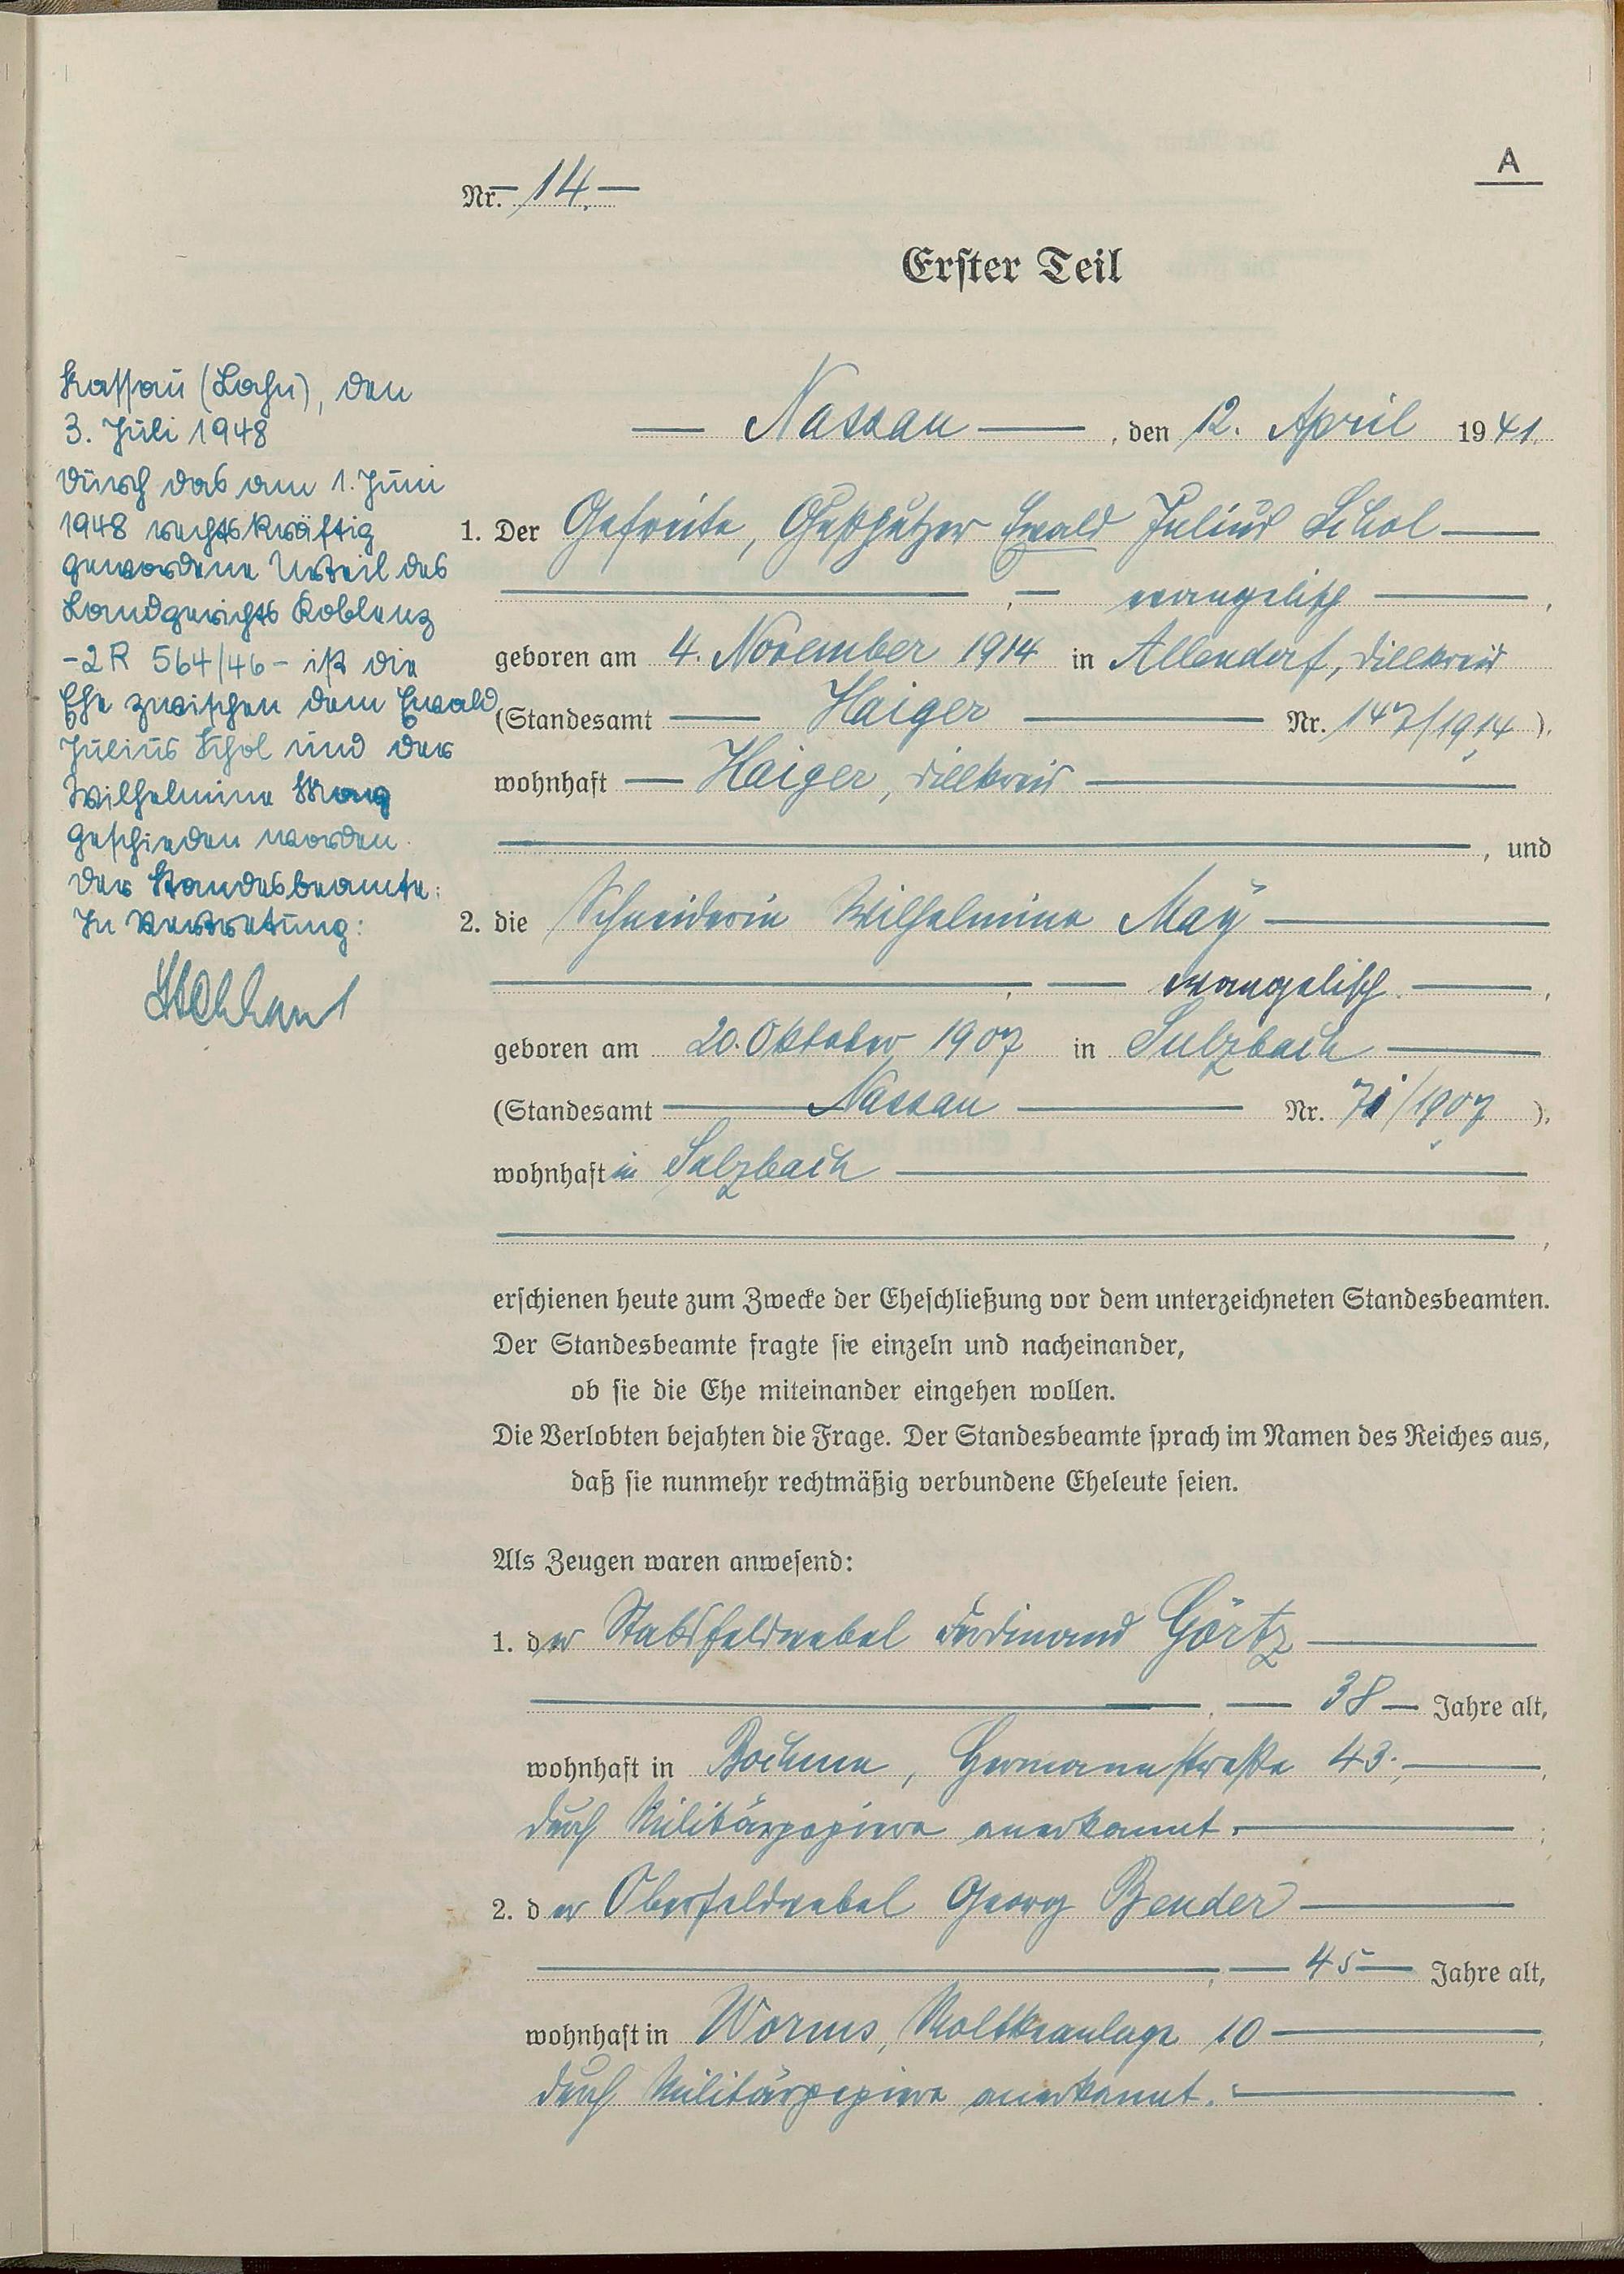 A
Nr. 14.
Erster Teil
Nassau, den 12. April 1941.
1. Der Gefreite, Gußputzer Ewald Julius Schol
, evangelisch,
geboren am 4. November 1914 in Allendorf, Dillkreis
(Standesamt Haiger Nr. 147/1914).
wohnhaft Haiger, Dillkreis
, und
2. die Schneiderin Wilhelmine May
, evangelisch,
geboren am 20. Oktober 1907 in Sulzbach
(Standesamt Nassau Nr. 71/1907),
wohnhaft in Sulzbach
,
erschienen heute zum Zwecke der Eheschließung vor dem unterzeichneten Standesbeamten.
Der Standesbeamte fragte sie einzeln und nacheinander,
ob sie die Ehe miteinander eingehen wollen.
Die Verlobten bejahten die Frage. Der Standesbeamte sprach im Namen des Reiches aus,
daß sie nunmehr rechtmäßig verbundene Eheleute seien.
Als Zeugen waren anwesend:
1. der Stabsfeldwebel Ferdinand Görtz
, 38 Jahre alt,
wohnhaft in Bochum, Hermannstraße 43.,
durch Militärpapiere anerkannt.;
2. der Oberfeldwebel Georg Bender
, 45 Jahre alt,
wohnhaft in Worms, Moltkeanlage 10,
durch Militärpapiere anerkannt.
Nassau (Lahn), den
3. Juli 1948
Durch das am 1. Juni
1948 rechtskräftig
gewordene Urteil des
Landgerichts Koblenz
-2R 564/46- ist die
Ehe zwischen dem Ewald
Julius Schol und der
Wilhelmine May
geschieden worden.
Der Standesbeamte:
In Vertretung: